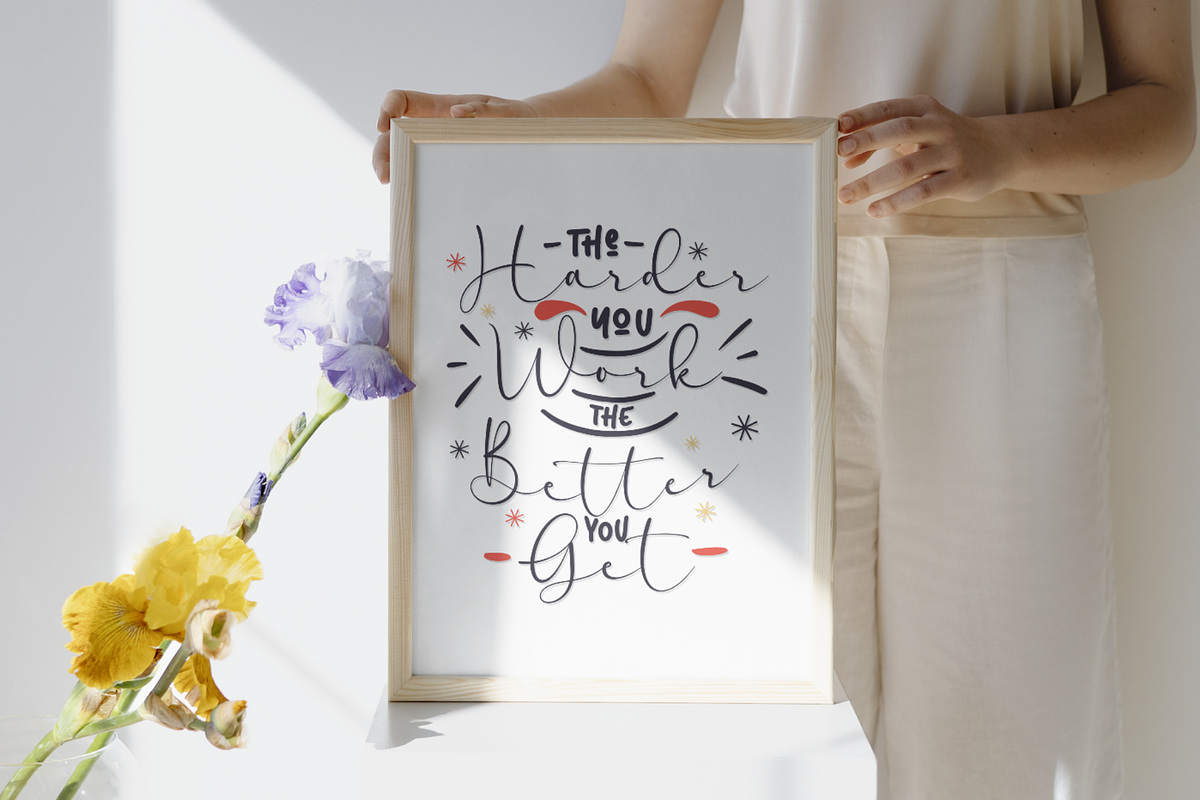 THe
Harder
YOU
Work
THE
Better
YOU
Get